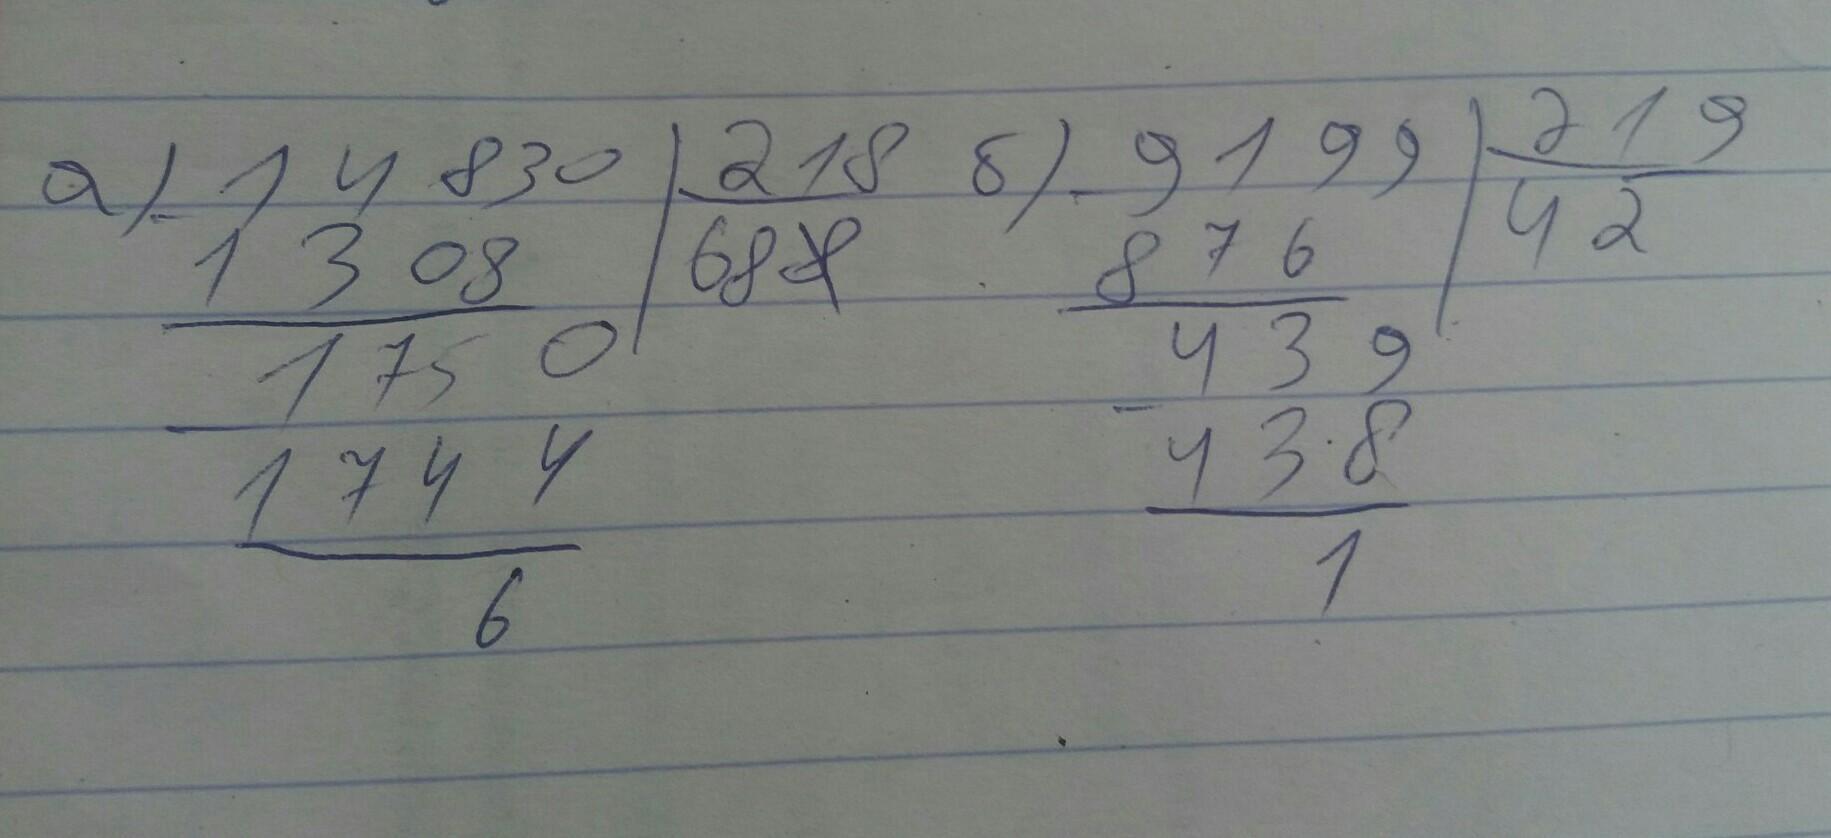 а) - 14830 | 218 б) - 9199 | 219
1308 | 68 876 | 42
1750 439
- 1744 - 438
6 1